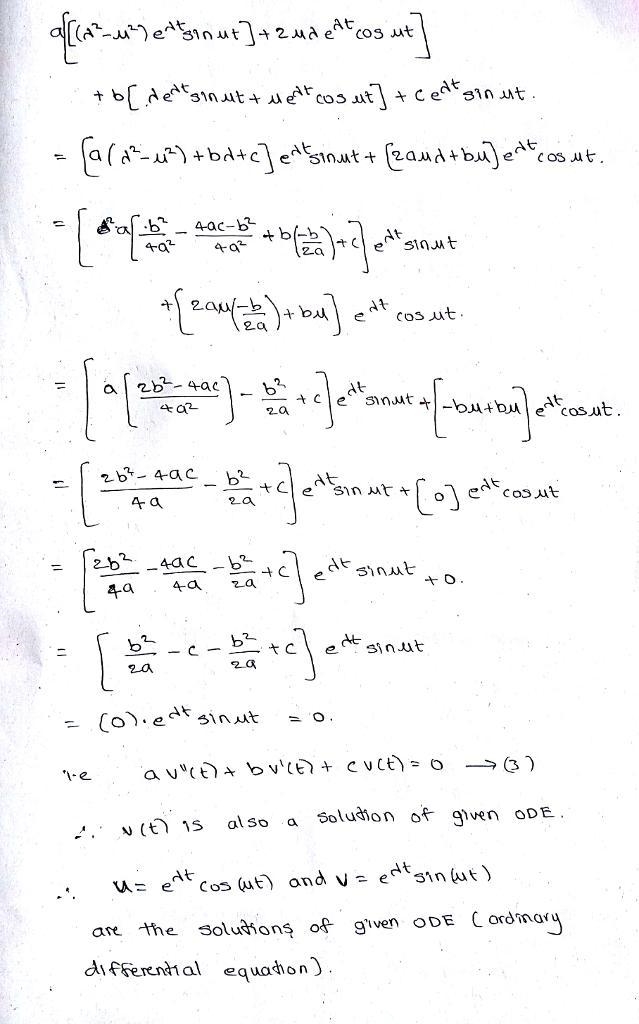 a[(λ²-μ²)e^λt sinμt]+2μλ e^λt cos μt]
+b[λe^λt sinμt+μe^λt cos μt]+ce^λt sin μt.
= [a(λ²-μ²)+bλ+c]e^λt sinμt+[2aμλ+bμ]e^λt cos μt.
= [a[b²/4a² - 4ac-b²/4a² +b(-b/2a)+c]e^λt sinμt
+[2aμ(-b/2a)+bμ] e^λt cos μt.
= [a[2b²-4ac/4a²] - b²/2a +c]e^λt sinμt+[-bμ+bμ]e^λt cosμt.
= [2b²-4ac/4a - b²/2a +c]e^λt sin μt+[0] e^λt cos μt
= [2b²/4a - 4ac/4a - b²/2a +c] e^λt sinμt +0.
= [b²/2a -c- b²/2a +c] e^λt sinμt
= (0).e^λt sinμt = 0.
i.e a v"(t)+ b v'(t)+ c v(t)=0 → (3)
∴ v(t) is also a solution of given ODE.
∴ u= e^λt cos(μt) and v= e^λt sin(μt)
are the solutions of given ODE (ordinary
differential equation).